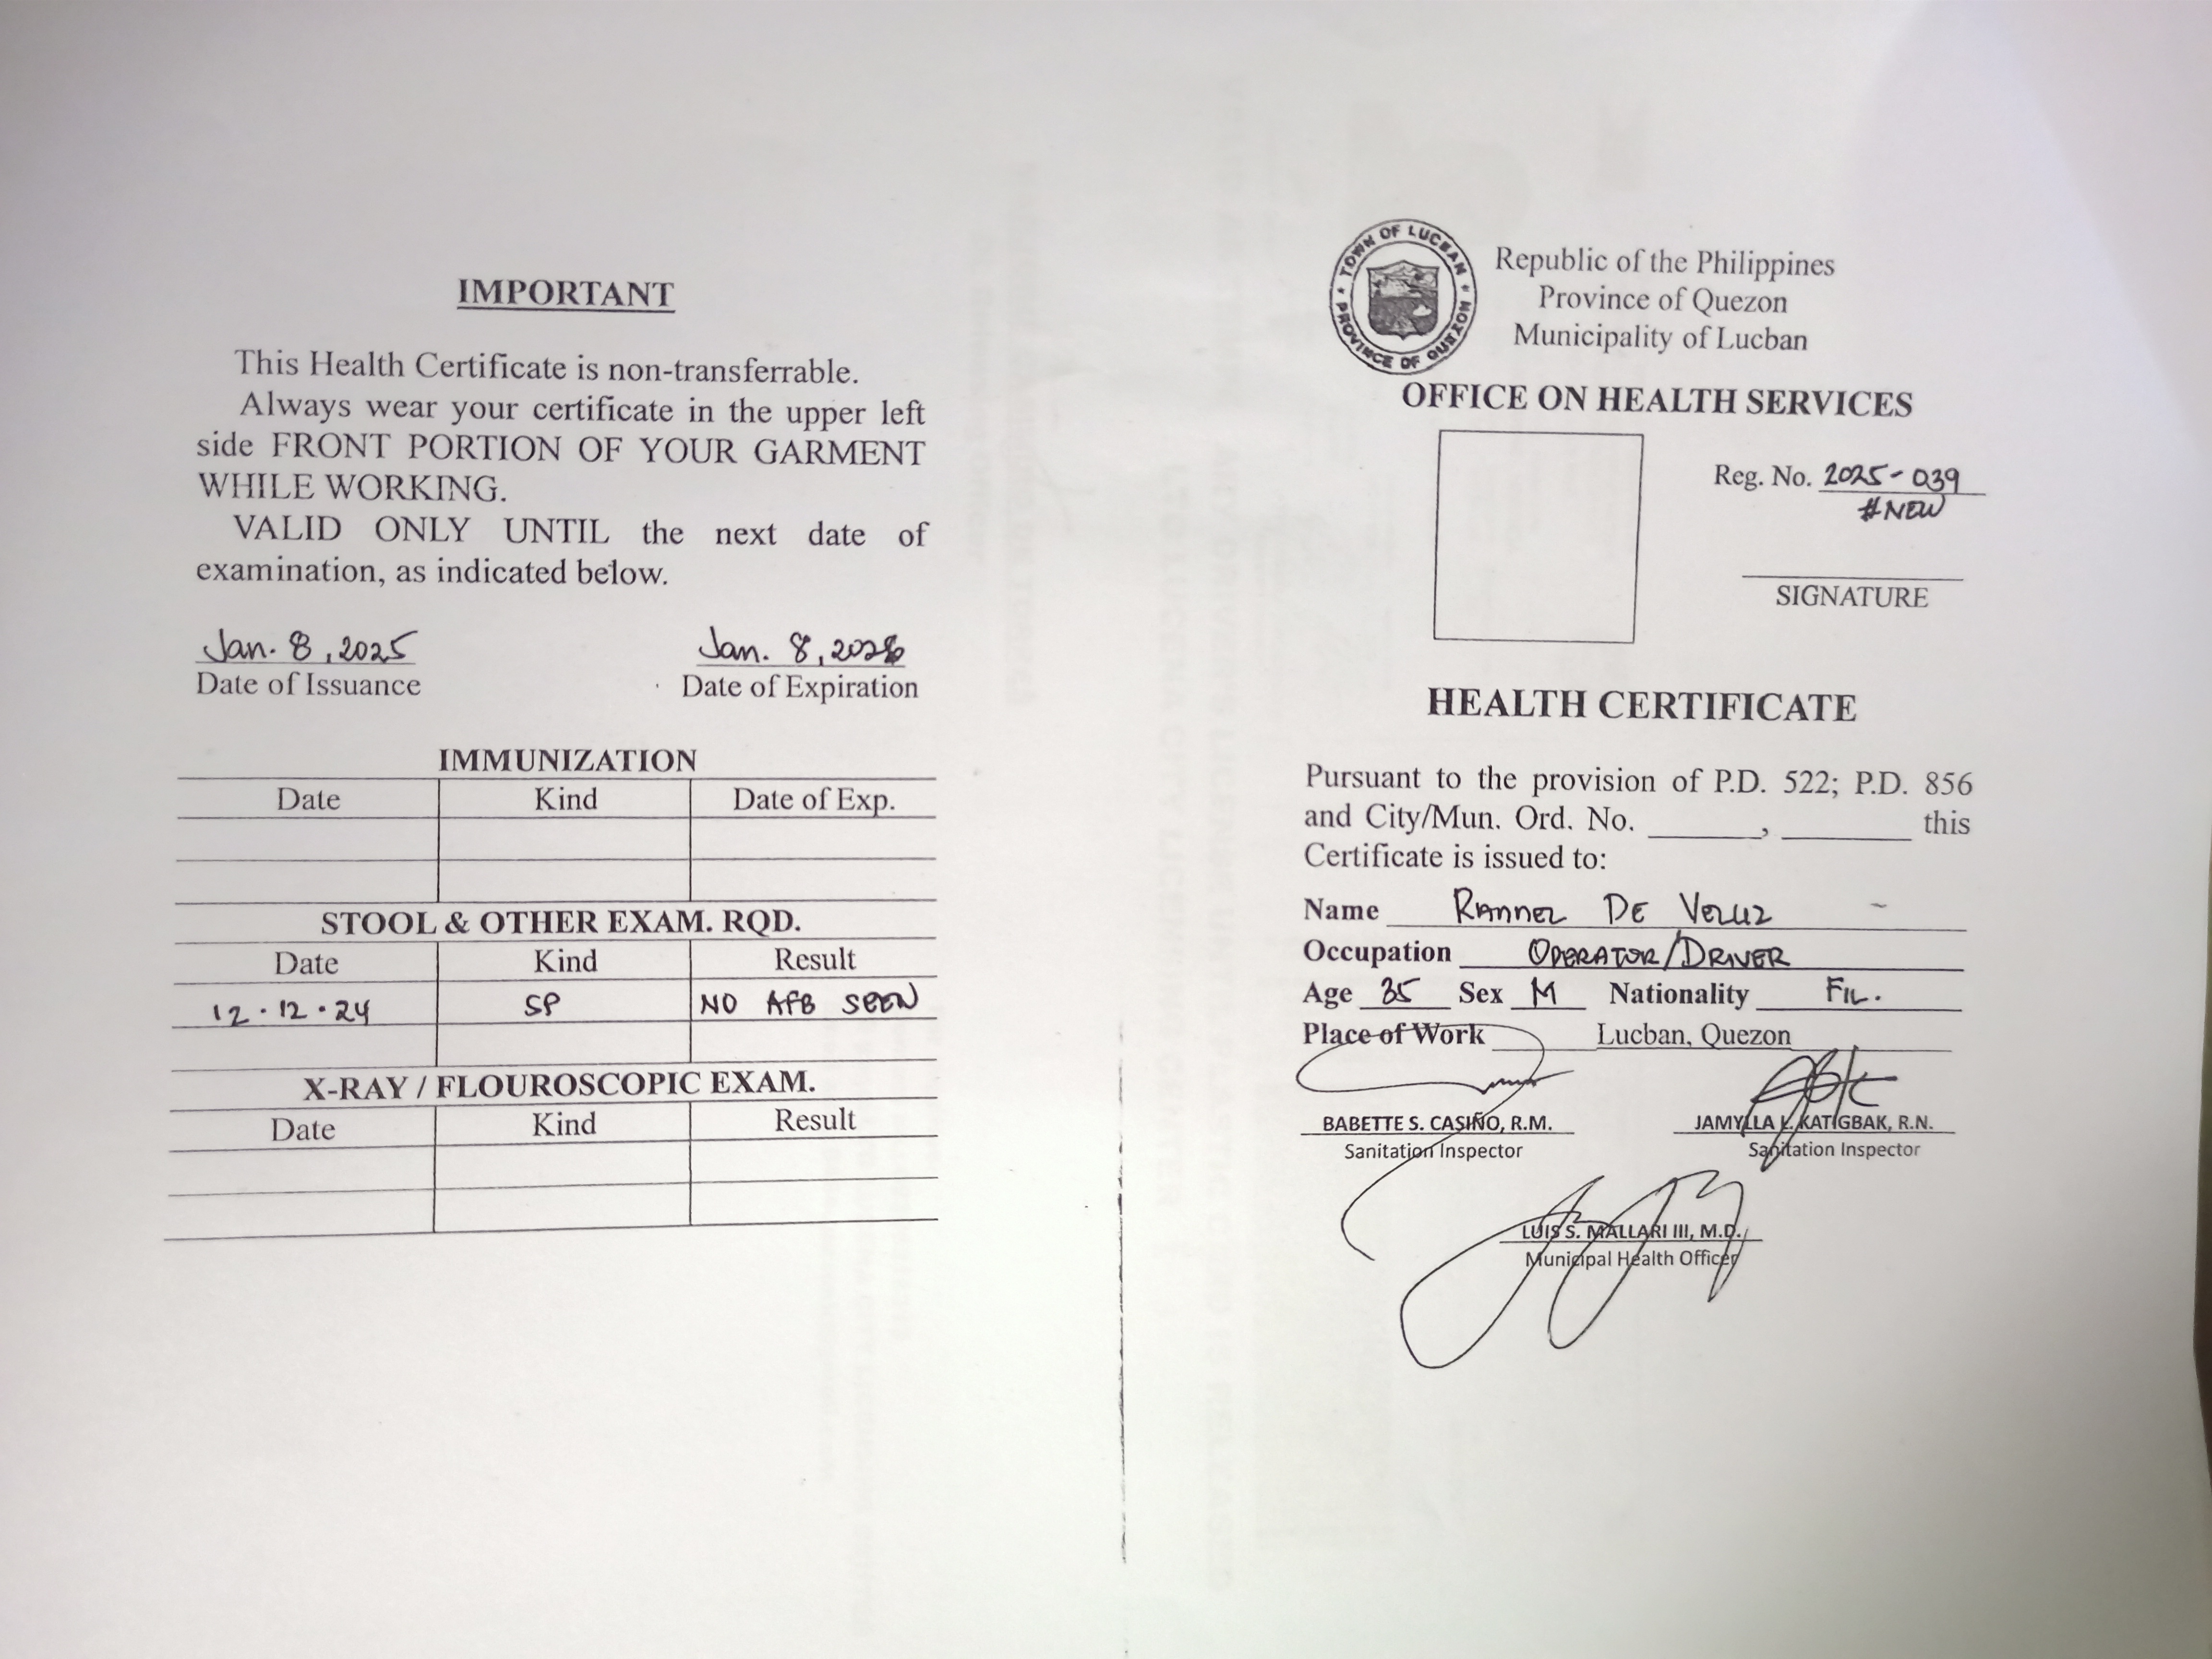 IMPORTANT
This Health Certificate is non-transferrable.
Always wear your certificate in the upper left
side FRONT PORTION OF YOUR GARMENT
WHILE WORKING.
VALID ONLY UNTIL the next date of
examination, as indicated below.
Jan. 8, 2025 Jan. 8, 2026
Date of Issuance Date of Expiration
IMMUNIZATION
Date Kind Date of Exp.
STOOL & OTHER EXAM. RQD.
Date Kind Result
12 · 12 · 24 SP NO AFB SEEN
X-RAY / FLOUROSCOPIC EXAM.
Date Kind Result
TOWN OF LUCBAN
PROVINCE OF QUEZON
Republic of the Philippines
Province of Quezon
Municipality of Lucban
OFFICE ON HEALTH SERVICES
Reg. No. 2025-039
#NEW
SIGNATURE
HEALTH CERTIFICATE
Pursuant to the provision of P.D. 522; P.D. 856
and City/Mun. Ord. No. ______, ______ this
Certificate is issued to:
Name Rammel De Veluz
Occupation OPERATOR/DRIVER
Age 35 Sex M Nationality FIL.
Place of Work Lucban, Quezon
BABETTE S. CASIÑO, R.M. JAMYLLA L. KATIGBAK, R.N.
Sanitation Inspector Sanitation Inspector
LUIS S. MALLARI III, M.D.
Municipal Health Officer